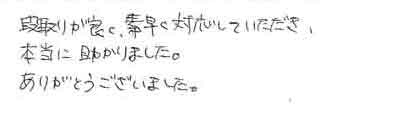 段取りが良く、素早く対応していただき、
本当に助かりました。
ありがとうございました。